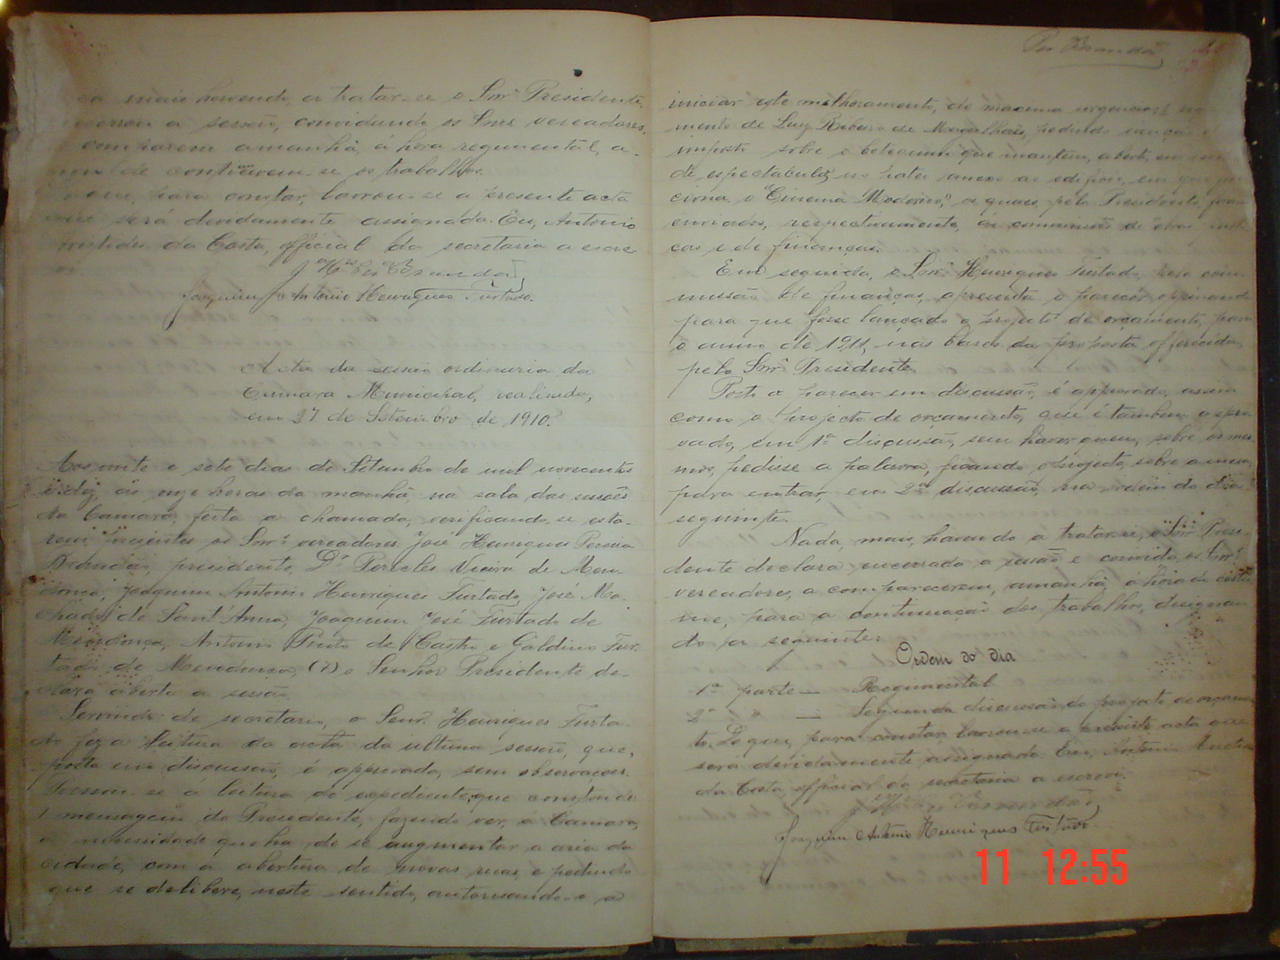 mais havendo a tratar-se o Snr. Presidente
a sessão, convidando os Snrs vereadores,
comparecem amanhã á hora regimental, a-
continuarem-se os trabalhos.
para constar, lavrou-se a presente acta
que será devidamente assignada. Eu, Antonio
da Costa, official da secretaria a escre
Joaquim Antonio Henriques Furtado.
Acta da sessão ordinaria da
Camara Municipal, realizada,
em 27 de Setembro de 1910.
Aos vinte e sete dias de Setembro de mil novecentos
e dez, ás onze horas da manhã, na sala das sessões
da Camara, feita a chamada, verificando-se esta-
rem presentes os Snrs. vereadores José Henriques Pereira
Brandão, presidente, Dr. Pericles Vieira de Men-
donça, Joaquim Antonio Henriques Furtado, José Ma-
chado de Sant'Anna, Joaquim José Furtado de
Mendonça, Antonio Pinto de Castro e Galdino Fur-
tado de Mendonça, (7) o Senhor Presidente de-
clara aberta a sessão.
Servindo de secretario, o Senr. Henriques Furta-
do faz a leitura da acta da ultima sessão, que,
posta em discussão, é approvada, sem observações.
Passou-se a leitura do expediente, que constou de
1 mensagem do Presidente, fazendo ver, a Camara,
a necessidade que ha de se augmentar a area da
cidade, com a abertura de novas ruas e pedindo
que se delibere, neste sentido, autorisando-o a
Per. Brandão
iniciar este melhoramento, de maxima urgencia; 1
mento de Luiz Ribeiro de Magalhães, pedindo
imposto sobre o botequim que mantem, aberto, em
de espectaculos no hotel annexo ao edificio, em que
ciona, o "Cinema Moderno," as quaes, pelo Presidente, foram
enviados, respectivamente, ás commissões de obras
cas e de finanças.
Em seguida, o Snr. Henriques Furtado, pela com-
missão de finanças, apresenta o parecer, opinando
para que fosse lançado o projecto de orçamento, para
o anno de 1911, nas bases da proposta offerecida,
pelo Snr. Presidente.
Posto o parecer em discussão, é approvado, assim
como o projecto de orçamento, que é tambem appro
vado, em 1ª discussão, sem haver quem, sobre os mes
mos, pedisse a palavra, ficando o projecto, sobre a mesa,
para entrar, em 2ª discussão, na ordem do dia
seguinte.
Nada, mais, havendo a tratar-se, o Snr. Presi-
dente declara encerrada a sessão e convida os Snrs.
vereadores, a comparecerem, amanhã, á hora do costu
me, para a continuação dos trabalhos, designan
do a seguinte:
Ordem do dia
1ª parte — Regimental
2ª " — Segunda discussão do projecto de orçamen
to. Do que, para constar, lavrou-se a presente acta que
será devidamente assignada. Eu, Antonio
da Costa, official da secretaria a escrevi.
Joaquim Antonio Henriques Furtado
11 12:55